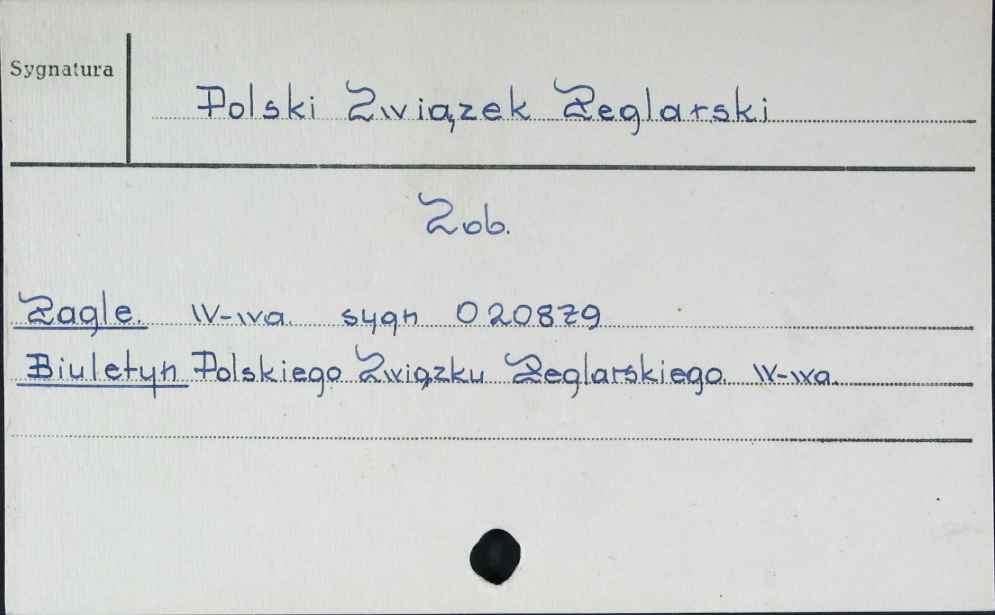 Sygnatura
Polski Związek Żeglarski
Zob.
Żagle. W-wa. sygn 020879
Biuletyn Polskiego Związku Żeglarskiego. W-wa.